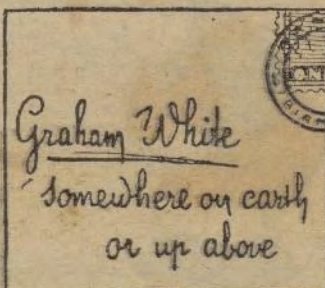 Graham White
somewhere on earth
or up above